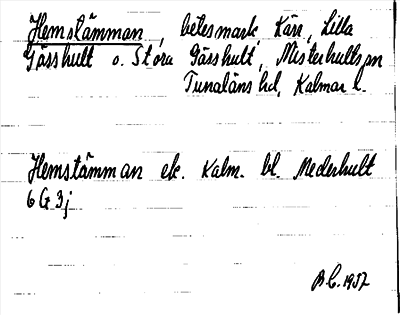 Hemstämman, betesmark Kärr, Lilla
Gässhult o. Stora Gässhult, Misterhults sn
Tunaläns hd, Kalmar l.
Hemstämman ek. Kalm. bl. Mederhult
6 G 3 j
B C. 1957